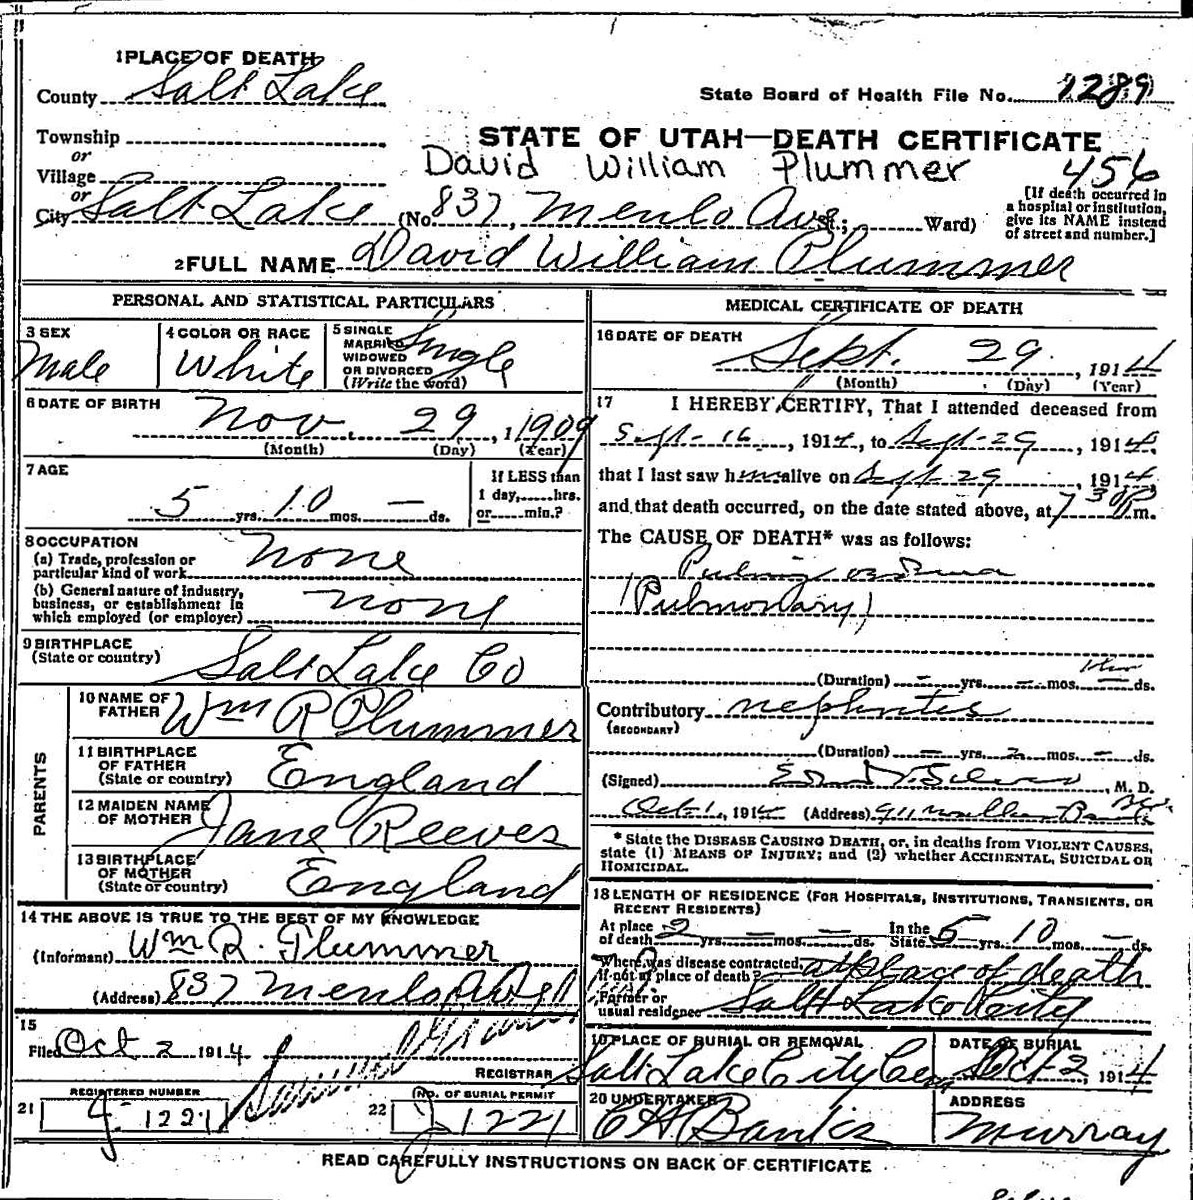 1 PLACE OF DEATH
County Salt Lake
State Board of Health File No. 1289
Township
or
STATE OF UTAH—DEATH CERTIFICATE
David William Plummer 456
Village
or
City Salt Lake (No. 837, Menlo Ave St.; Ward)
[If death occurred in a hospital or institution, give its NAME instead of street and number.]
2 FULL NAME David William Plummer
PERSONAL AND STATISTICAL PARTICULARS
3 SEX
Male
4 COLOR OR RACE
White
5 SINGLE MARRIED WIDOWED OR DIVORCED (Write the word)
Single
6 DATE OF BIRTH
Nov. 29, 1909
(Month) (Day) (Year)
7 AGE
5 yrs. 10 mos. — ds.
If LESS than 1 day, hrs. or min.?
8 OCCUPATION
(a) Trade, profession or particular kind of work None
(b) General nature of industry, business, or establishment in which employed (or employer) none
9 BIRTHPLACE
(State or country) Salt Lake Co
PARENTS
10 NAME OF FATHER Wm R Plummer
11 BIRTHPLACE OF FATHER (State or country) England
12 MAIDEN NAME OF MOTHER Jane Reeves
13 BIRTHPLACE OF MOTHER (State or country) England
14 THE ABOVE IS TRUE TO THE BEST OF MY KNOWLEDGE
(Informant) Wm R. Plummer
(Address) 837 Menlo Ave
15
Filed Oct 2 1914
REGISTRAR
21 REGISTERED NUMBER
J-1221
22 (NO. OF BURIAL PERMIT
J 1221
MEDICAL CERTIFICATE OF DEATH
16 DATE OF DEATH
Sept. 29, 1914
(Month) (Day) (Year)
17 I HEREBY CERTIFY, That I attended deceased from
Sept-16, 1914, to Sept-29, 1914,
that I last saw him alive on Sept-29, 1914,
and that death occurred, on the date stated above, at 7 30 P m.
The CAUSE OF DEATH* was as follows:
(Pulmonary)
(Duration) – yrs. – mos. – ds.
Contributory nephritis
(SECONDARY)
(Duration) – yrs. 2 mos. – ds.
(Signed) , M. D.
Oct 1, 1914 (Address) 911
* State the DISEASE CAUSING DEATH, or, in deaths from VIOLENT CAUSES,
state (1) MEANS OF INJURY; and (2) whether ACCIDENTAL, SUICIDAL OR
HOMICIDAL.
18 LENGTH OF RESIDENCE (FOR HOSPITALS, INSTITUTIONS, TRANSIENTS, OR
RECENT RESIDENTS)
At place of death 2 yrs. – mos. – ds. In the State 5 yrs. 10 mos. – ds.
Where was disease contracted, if not at place of death? at place of death
Former or usual residence Salt Lake City
19 PLACE OF BURIAL OR REMOVAL
Salt Lake City Cem
DATE OF BURIAL
Oct 2, 1914
20 UNDERTAKER
C A Banks
ADDRESS
Murray
READ CAREFULLY INSTRUCTIONS ON BACK OF CERTIFICATE